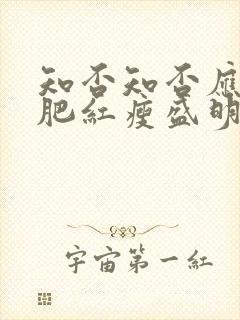 知否知否應
肥紅瘦盛明
宇宙第一紅